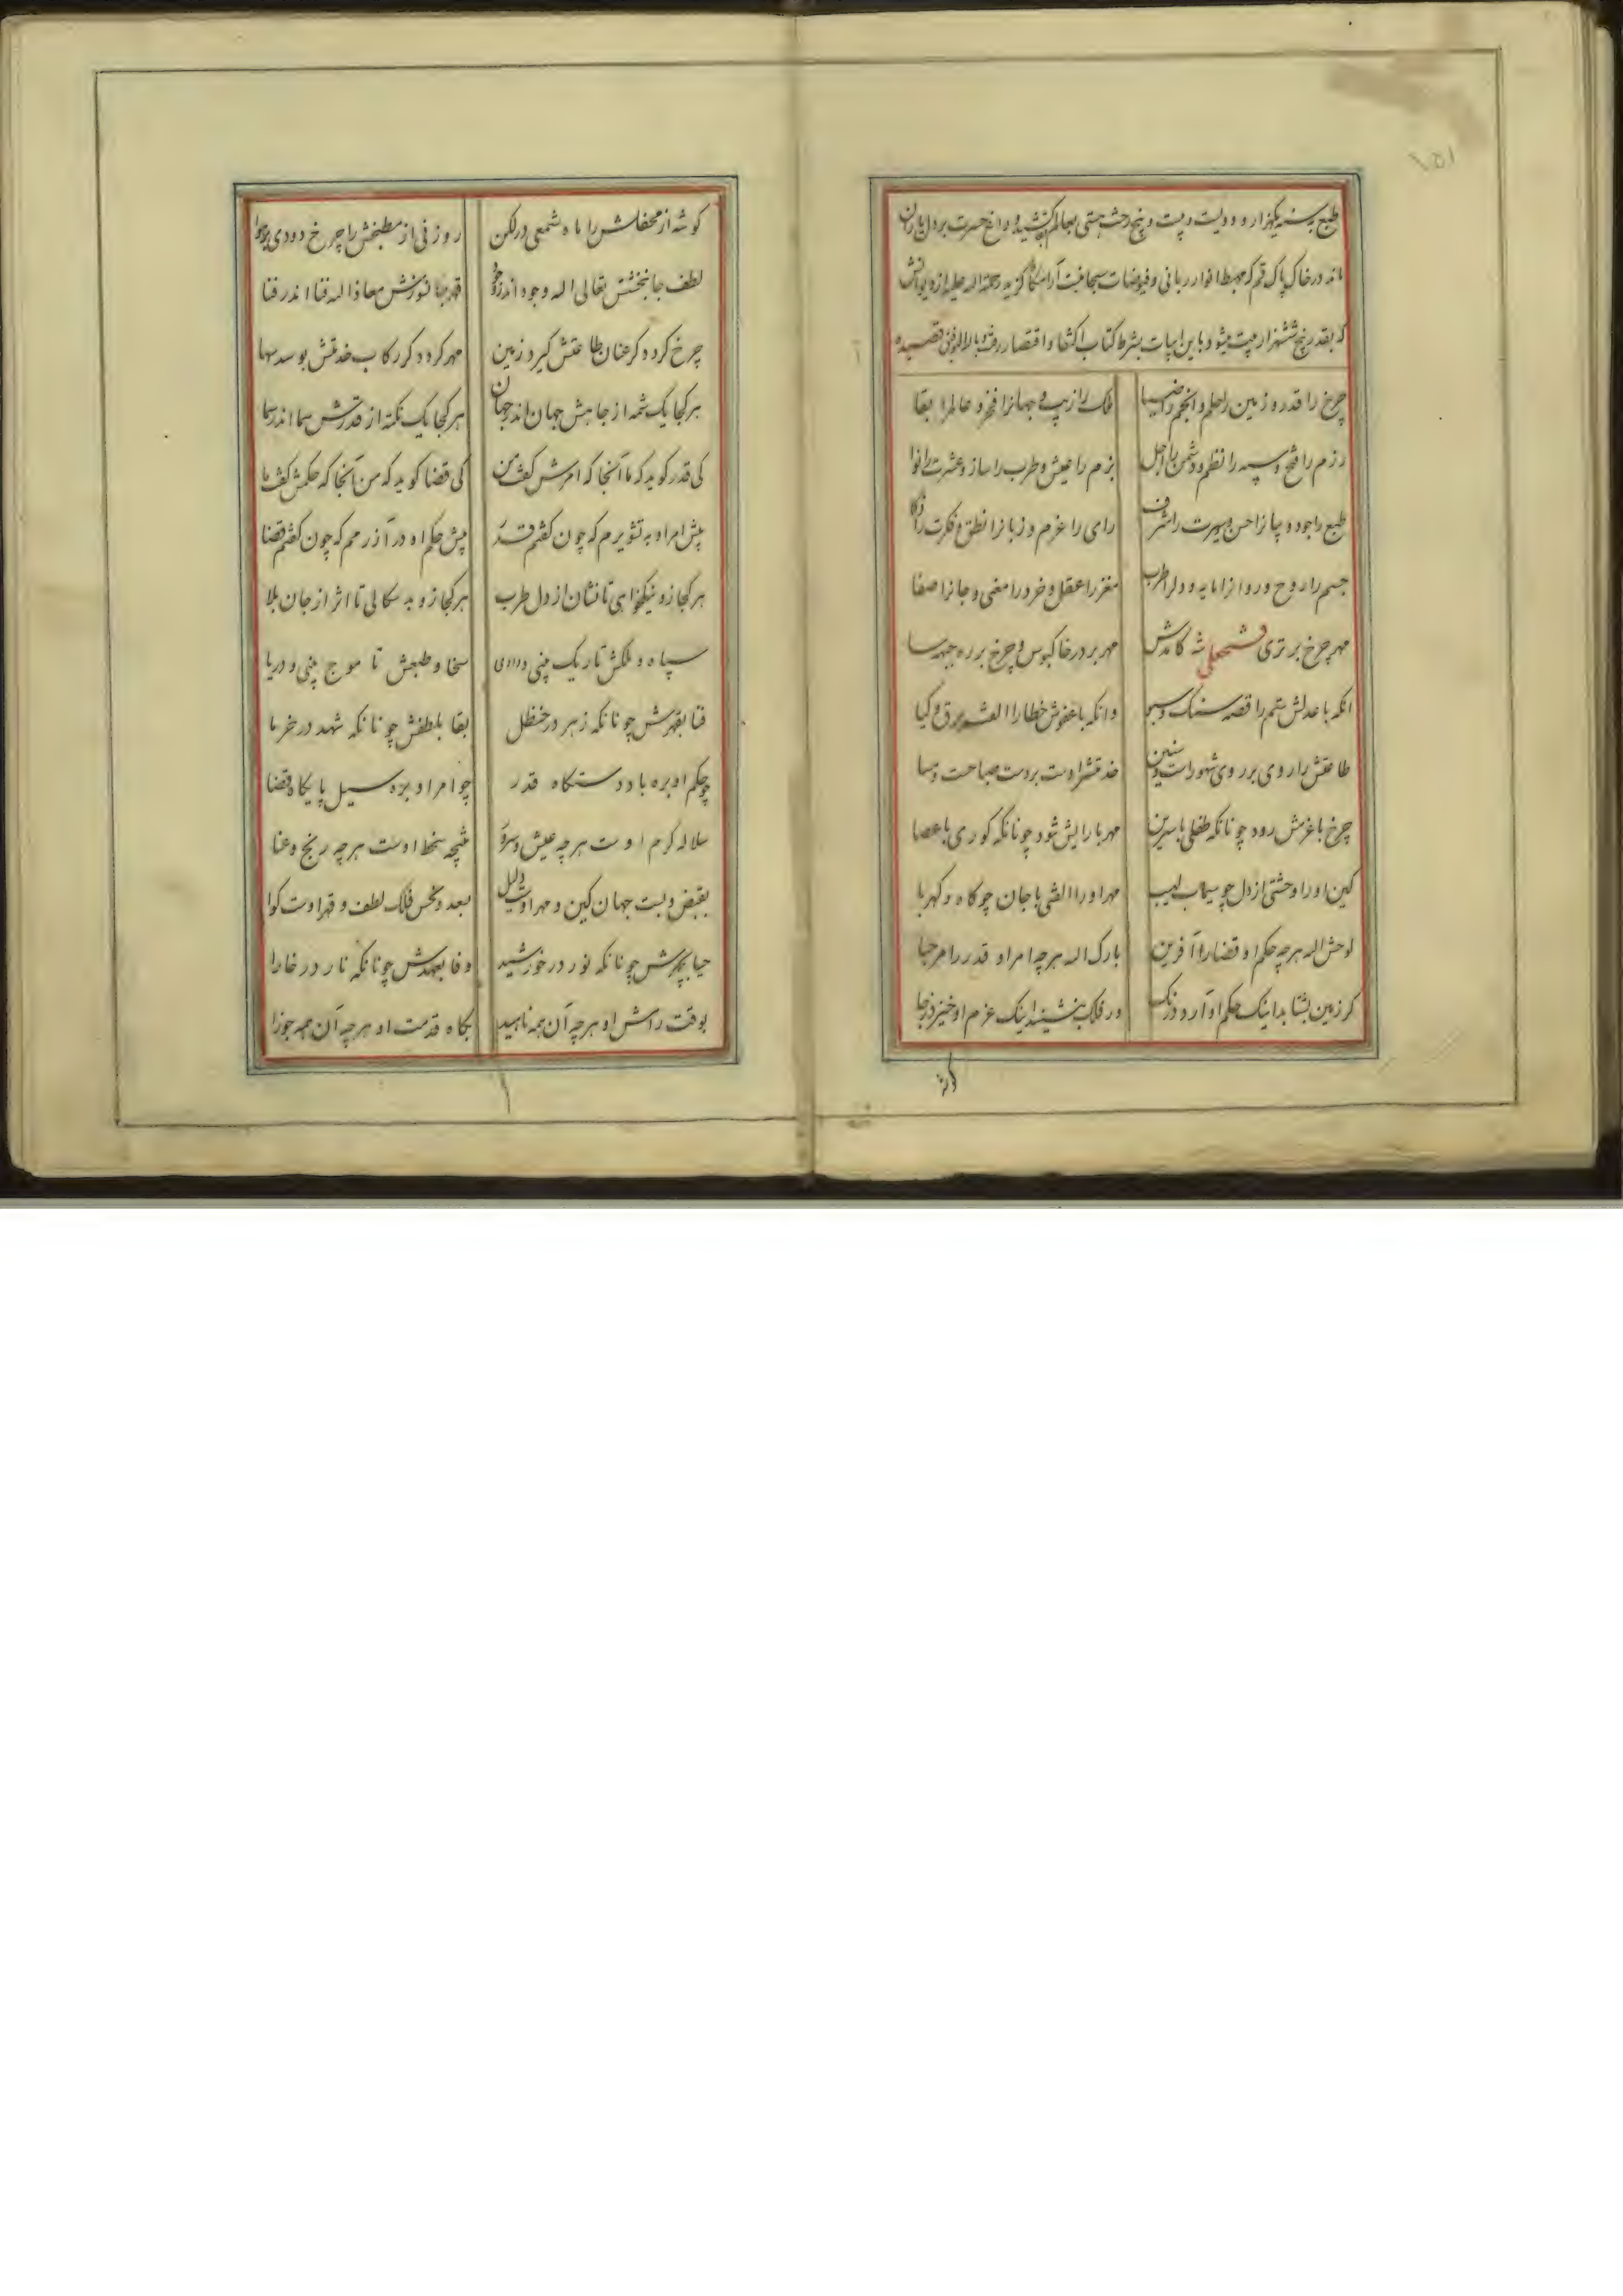 ۱۵۱
طبع بسنه یکهزار و دویست و بیست و پنج رخت هستی بعالم بقا کشید و داغ حسرت بر دل یاران
ماند در خاک پاک قم که مهبط انوار ربانی و فیوضات سبحانیست آرامگاه گزید رحمة اله علیه از دیوانش
که بقدر پنج ششهزار بیت میشود باین ابیات بشرط کتاب اکتفا و اقتصار رفت قصیده
چرخ را قدر و زمین را حلم و انجم را ضیا ملک را زیب و جهانرا فخر و عالمرا بقا
رزم را فتح و سپه را نظم و دشمن را اجل بزم را عیش و طرب را ساز و عشرت را نوا
طبع را جود و جانرا حسن و سیرت را شرف رای را عزم و زبانرا نطق و فکرت را ذکا
جسم را روح و روانرا مایه و دلرا طرب مغز را عقل و خرد را معنی و جانرا صفا
مهر چرخ برتری فتحعلی شه کامدش مهر بر در خاکبوس و چرخ بر ره جبهه سا
آنکه با عدلش ستم را قصه سنک و سبو وانکه با عفوش خطا را الفت برق و کیا
طاعتش را روی بر روی شهور است و سنین خدمتش را دست بر دست صباحت و مسا
چرخ با عزمش رود چونانکه طفلی با سرین مهر با رایش شود چونانکه کوری با عصا
کین او را وحشتی از دل چو سیماب لهیب مهر او را الفتی با جان چو کاه و کهربا
لوحش اله هر چه حکم او قضا را آفرین بارک اله هر چه امر او قدر را مرحبا
کر زمین بشتابد اینک حکم او آرد درنک ور فلک بنشیند اینک عزم او خیزد ز جا
کوشه از محفلش را ماه شمعی در لکن روزنی از مطبخش را چرخ دودی بر هوا
لطف جانبخشش تعالی اله وجود اندر وجود قهر جانسوزش معاذ اله فنا اندر فنا
چرخ کردد کر عنان طاعتش کیرد زمین مهر کردد کر رکاب خدمتش بوسد سها
هر کجا یک شمه از جاهش جهان اندر جهان هر کجا یک نکته از قدرش سما اندر سما
کی قدر کوید که ما آنجا که امرش کفت من کی قضا کوید که من آنجا که حکمش کفت ما
پیش امر او به تشویرم که چون کفتم قدر پیش حکم او در آزرمم که چون کفتم قضا
هر کجا زو نیکخواهی تا نشان از دل طرب هر کجا زو بد سکالی تا اثر از جان بلا
سپاه و ملکش تا ریک بینی و وادی سخا و طبعش تا موج بینی و دریا
فنا بقهرش چونانکه زهر در حنظل بقا بلطفش چونانکه شهد در خرما
چو حکم او بره باد دستکاه قدر چو امر او بره سیل پایکاه قضا
سلاله کرم اوست هر چه عیش و سرور نتیجه سخط اوست هر چه رنج و عنا
بقبض و بست جهان کین و مهر اوست دلیل بسعد و نحس فلک لطف و قهر اوست کوا
حیا بچهرش چونانکه نور در خورشید وفا بعهدش چونانکه نار در خارا
بوقت رامش او هر چه آن همه ناهید بکاه خدمت او هر چه آن همه جوزا